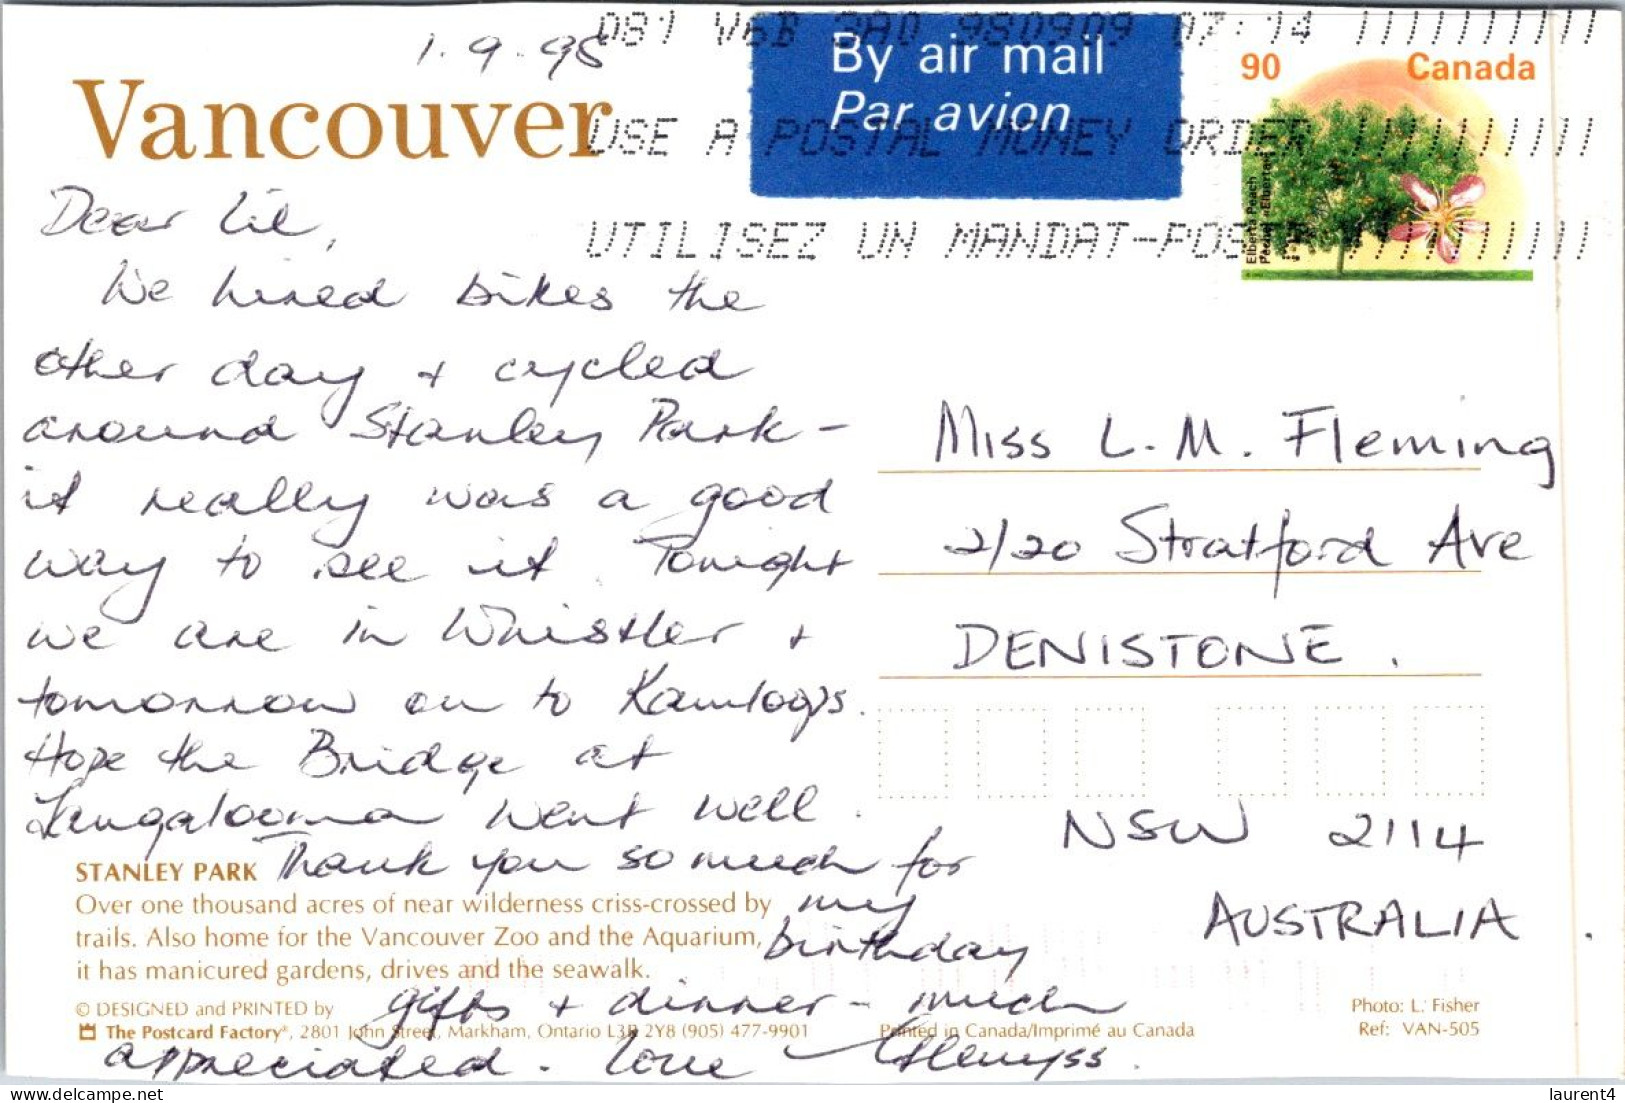 1.9.98
081 V6B 3A0 980909 07:14
By air mail
Par avion
90 Canada
Elberta Peach
Vancouver
USE A POSTAL MONEY ORDER
UTILISEZ UN MANDAT-POSTE
Dear Lil,
We hired bikes the
other day + cycled
around Stanley Park -
it really was a good
way to see it. Tonight
we are in Whistler +
tomorrow on to Kamloops.
Hope the Bridge at
Tangalooma went well.
Thank you so much for
my
birthday
gifts + dinner - much
appreciated. Love Glenyss.
Miss L. M. Fleming
2/20 Stratford Ave
DENISTONE.
NSW 2114
AUSTRALIA.
STANLEY PARK
Over one thousand acres of near wilderness criss-crossed by
trails. Also home for the Vancouver Zoo and the Aquarium,
it has manicured gardens, drives and the seawalk.
© DESIGNED and PRINTED by
The Postcard Factory®, 2801 John Street, Markham, Ontario L3R 2Y8 (905) 477-9901
Printed in Canada/Imprimé au Canada
Photo: L. Fisher
Ref: VAN-505
laurent4